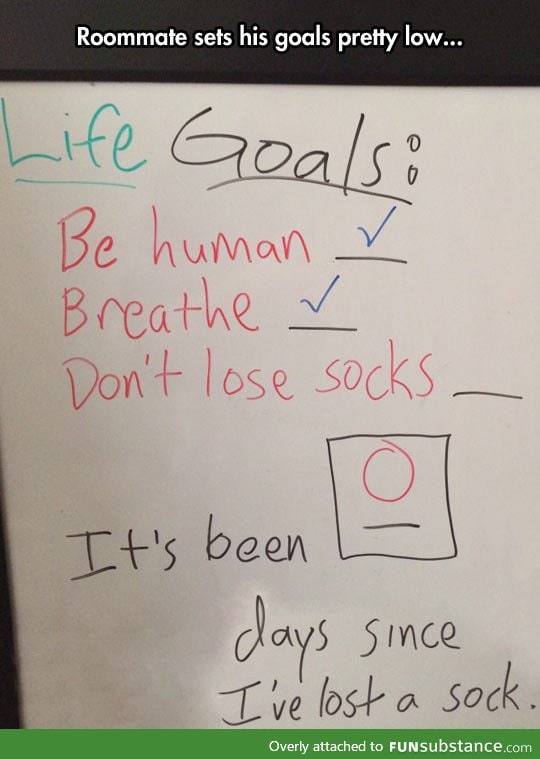 Roommate sets his goals pretty low...
Life Goals:
Be human ✓
Breathe ✓
Don't lose socks __
It's been 0
days since
I've lost a sock.
Overly attached to FUNsubstance.com